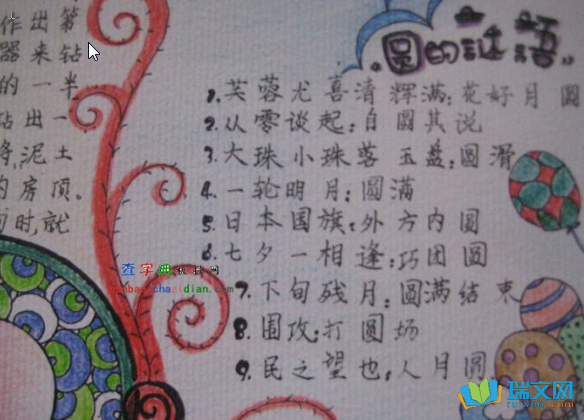 作出第
器来钻
的一半
钻出一
泥土
的房顶。
时,就
“圆的谜语”
1.芙蓉尤喜清辉满:花好月圆
2.从零谈起:自圆其说
3.大珠小珠落玉盘:圆滑
4.一轮明月:圆满
5.日本国旗:外方内圆
6.七夕一相逢:巧团圆
7.下旬残月:圆满结束
8.围攻:打圆场
9.民之望也:人月圆
查字典
chazidian.com
瑞文网